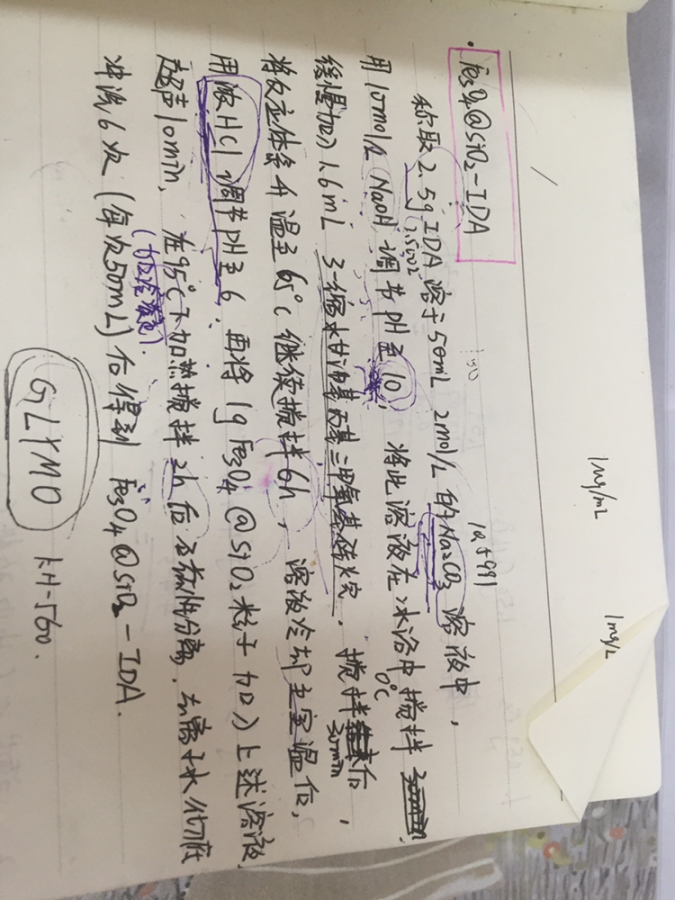 1mg/mL
1mg/L
· Fe3O4@SiO2-IDA
称取2.5g IDA 溶于50mL 2mol/L 的Na2CO3 溶液中,
用10mol/L NaOH 调节pH至10, 将此溶液在冰浴中搅拌
0℃
缓慢加入1.6mL 3-缩水甘油基丙基三甲氧基硅烷, 搅拌 后,
30min
将反应体系升温至65℃继续搅拌6h, 溶液冷却至室温后,
用浓HCl调节pH至6, 再将1g Fe3O4@SiO2粒子加入上述溶液
超声10min, 在95℃下加热搅拌2h后 磁性分离. 去离子水
冲洗6次 (每次50mL) 后得到 Fe3O4@SiO2-IDA.
GLYMO KH-560.